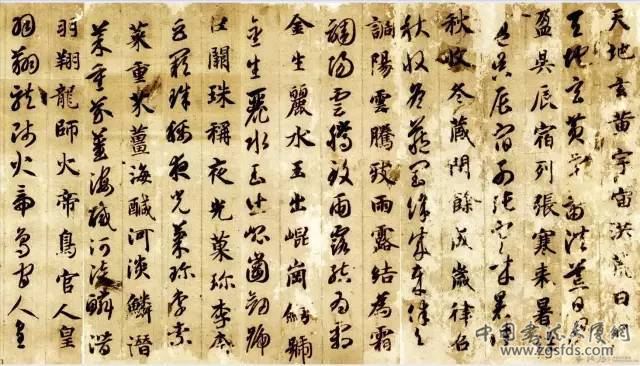 天地玄黄宇宙洪荒日月
天地玄黄宇宙洪荒日月
盈昃辰宿列張寒来暑
盈昃辰宿列張寒来暑往
秋收冬藏閏餘成歲律吕
秋收冬藏閏餘成歲律吕
調陽雲騰致雨露結為霜
調陽雲騰致雨露結為霜
金生麗水玉出崐崗劍號
金生麗水玉出崐崗劍號
巨闕珠稱夜光菓珍李柰
巨闕珠稱夜光菓珍李柰
菜重芥薑海醎河淡鱗潛
菜重芥薑海醎河淡鱗潛
羽翔龍師火帝鳥官人皇
羽翔龍師火帝鳥官人皇
中国书法大厦网
www.zgsfds.com